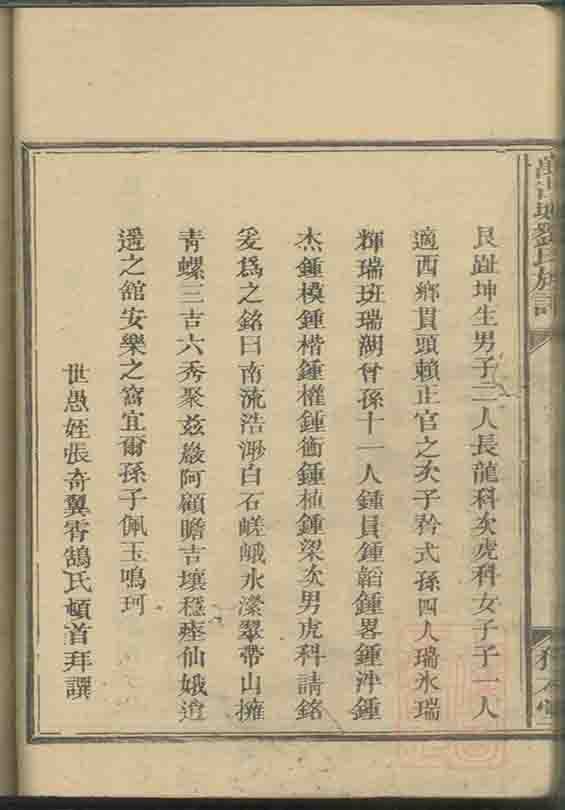 劉氏族譜
艮趾坤生男子二人長龍科次虎科女子子一人
適西鄉貫頭賴正官之次子矜式孫四人瑞氷瑞
輝瑞班瑞湖曾孫十一人鍾員鍾韜鍾畧鍾泮鍾
杰鍾模鍾楷鍾權鍾衡鍾植鍾梁次男虎科請銘
爰爲之銘曰南流浩渺白石嵯峨水瀠翠帶山擁
青螺三吉六秀聚茲巖阿顧瞻吉壤穩瘞仙娥逍
遙之舘安樂之窩宜爾孫子佩玉鳴珂
世愚姪張奇翼霄鵠氏頓首拜譔